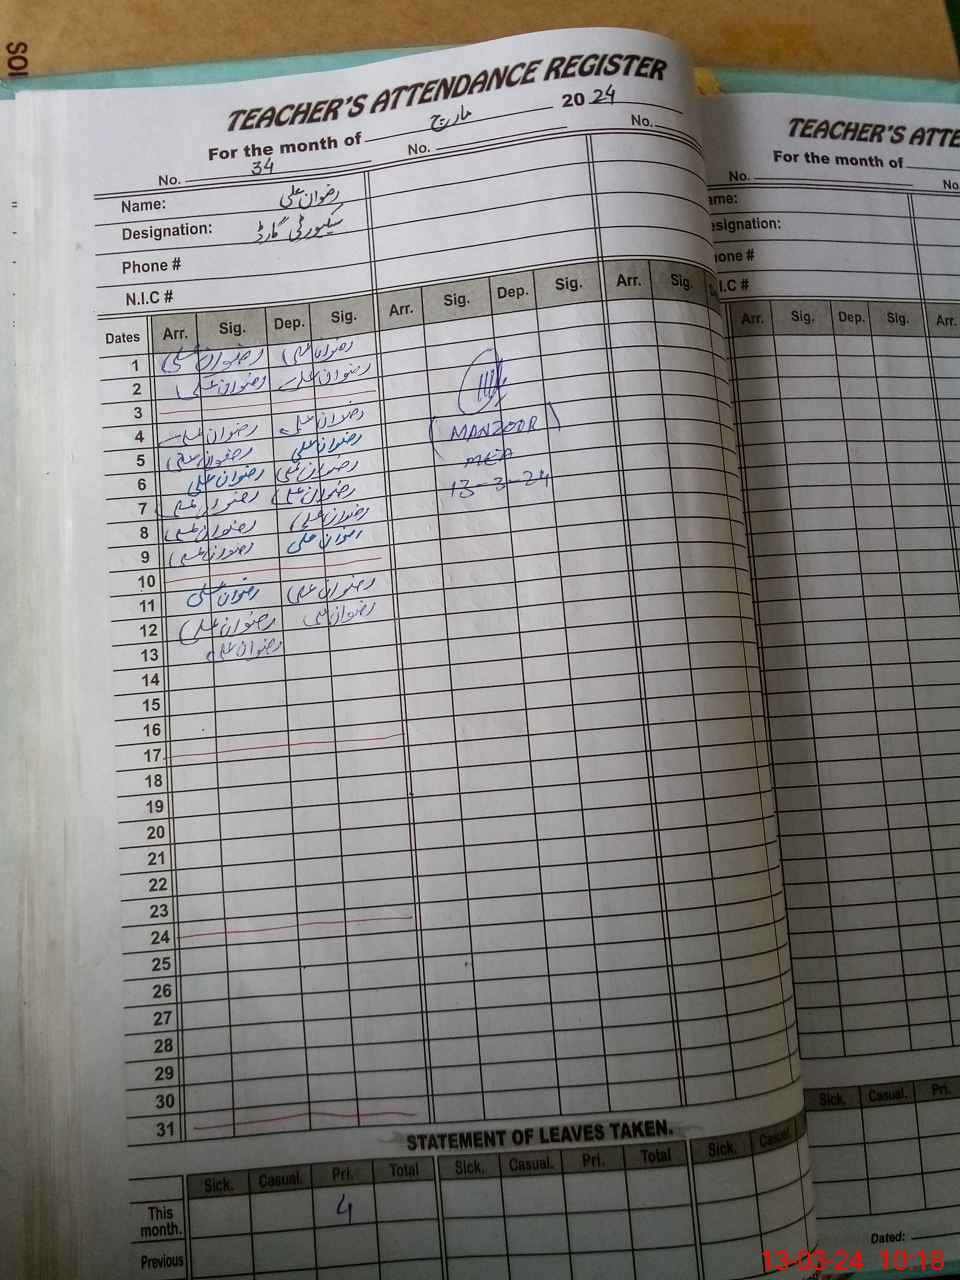 SOI
TEACHER'S ATTENDANCE REGISTER
For the month of مارچ 2024
No. 34 No. No.
Name: رضوان علی
Designation: سیکیورٹی گارڈ
Phone #
N.I.C #
Dates Arr. Sig. Dep. Sig. Arr. Sig. Dep. Sig. Arr. Sig.
1 رضوان علی رضوان علی
2 رضوان علی رضوان علی
3
4 رضوان علی رضوان علی
5 رضوان علی رضوان علی
6 رضوان علی رضوان علی
7 رضوان علی رضوان علی
8 رضوان علی رضوان علی
9 رضوان علی رضوان علی
10
11 رضوان علی رضوان علی
12 رضوان علی رضوان علی
13 رضوان علی
(MANZOOR)
MEA
13-3-24
14
15
16
17
18
19
20
21
22
23
24
25
26
27
28
29
30
31
STATEMENT OF LEAVES TAKEN.
Sick. Casual. Pri. Total Sick. Casual. Pri. Total Sick. Casual
This month. 4
Previous
TEACHER'S ATTE
For the month of
No. No
ame:
esignation:
one #
I.C #
Arr. Sig. Dep. Sig. Arr.
Sick. Casual. Pri.
Dated:
13-03-24 10:18